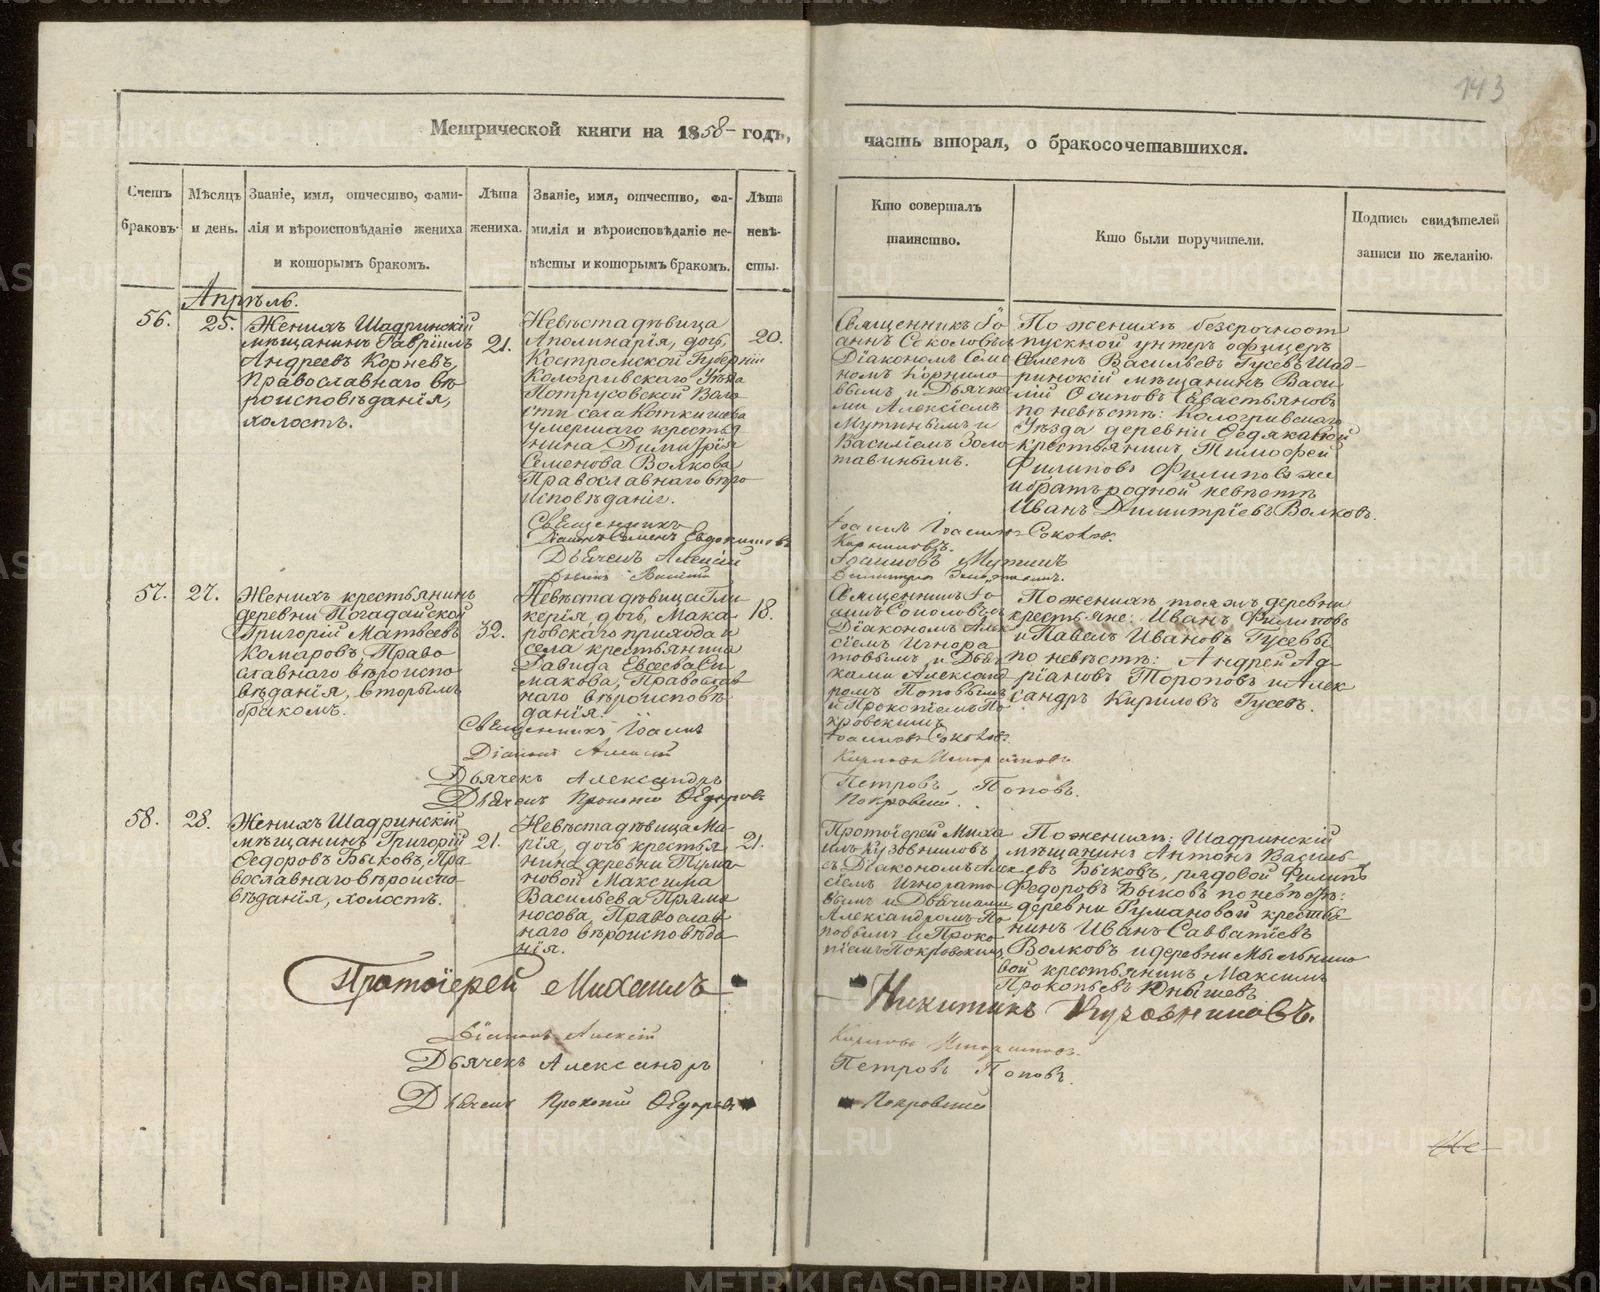 143
Метрической книги на 1858 годъ,
часть вторая, о бракосочетавшихся.
Счетъ браковъ.
Мѣсяцъ и день.
Званіе, имя, отчество, фами-
лія и вѣроисповѣданіе жениха
и которымъ бракомъ.
Лѣта
жениха.
Званіе, имя, отчество, фа-
милія и вѣроисповѣданіе не-
вѣсты и которымъ бракомъ.
Лѣта
невѣ-
сты.
Кто совершалъ
таинство.
Кто были поручители.
Подпись свидѣтелей
записи по желанію.
Апрѣль.
56.
25.
Женихъ Шадринскій
мѣщанинъ Гавріилъ
Андреевъ Корневъ,
Православнаго вѣ
роисповѣданія,
холостъ.
21.
Невѣста дѣвица
Аполинарія, дочь,
Костромской Губерніи
Кологривскаго Уѣзда
Потрусовской Воло
сти села Коткишева
умершаго крестья
нина Димитрія
Семенова Волкова
Православнаго вѣро
исповѣданія.
20.
Священникъ Іо
аннъ Соколовъ съ
Діакономъ Семе
номъ Корнило
вымъ и Дьячка
ми Алексіемъ
Мутинымъ и
Василіемъ Золо
тавинымъ.
По женихѣ безсрочноот
пускной унтеръ офицеръ
Семенъ Васильевъ Гусевъ, Шад-
ринскій мѣщанинъ Васи
лій Осиповъ Севастьяновъ
по невѣстѣ: Кологривскаго
Уѣзда деревни
крестьянинъ Тимофей
Филиповъ Филиповъ же
и братъ родной невѣсты
Иванъ Димитріевъ Волковъ.
Священникъ
Діаконъ Семенъ Евдокимовъ
Дьячекъ Алексій
Дьячекъ Василій
Іоаннъ Соколовъ.
Корниловъ.
Іоанновъ Мутинъ
57.
27.
Женихъ крестьянинъ
деревни Погадайской
Григорій Матвѣевъ
Комаровъ, Право
славнаго вѣроиспо
вѣданія, вторымъ
бракомъ.
32.
Невѣста дѣвица Гли
керія, дочь, Мака
ровскаго прихода и
села крестьянина
Давида Евсеева Си
макова, Православ
наго вѣроисповѣ
данія.
18.
Священникъ Іо
аннъ Соколовъ съ
Діакономъ Алек
сіемъ Игнора
товымъ и Дьяч
ками Александ
ромъ Поповымъ
и Прокопіемъ По
кровскимъ
По женихѣ тояжъ деревни
крестьяне: Иванъ Филиповъ
и Павелъ Ивановъ Гусевы
по невѣстѣ: Андрей Ад
ріановъ Тороповъ и Алек
сандръ Кириловъ Гусевъ.
Священникъ Іоаннъ
Діаконъ Алексій
Дьячекъ Александръ
Дьячекъ Прокопій Ѳедоровъ
Іоанновъ Соколовъ.
Петровъ Поповъ.
Покровскій.
58.
28.
Женихъ Шадринскій
мѣщанинъ Григорій
Ѳедоровъ Быковъ, Пра
вославнаго вѣроиспо
вѣданія, холостъ.
21.
Невѣста дѣвица Ма
рія, дочь крестья
нина деревни Тума
новой Максима
Васильева Прямо
носова, Православ
наго вѣроисповѣда
нія.
21.
Протоіерей Миха
илъ Кузовниковъ
съ Діакономъ Алек
сіемъ Игнорато
вымъ и Дьячками
Александромъ По
повымъ и Проко
піемъ Покровскимъ
По женихѣ: Шадринскій
мѣщанинъ Антонъ Василь
евъ Быковъ, рядовой Филипъ
Федоровъ Быковъ по невѣстѣ:
деревни Тумановой крестья
нинъ Иванъ Савватіевъ
Волковъ и деревни Мыльнико
вой крестьянинъ Максимъ
Прокопьевъ Юнышевъ
Протоіерей Михаилъ
Никитинъ Кузовниковъ.
Діаконъ Алексій
Дьячекъ Александръ
Петровъ Поповъ.
Дьячекъ Прокопій Ѳедоровъ
Покровскій
METRIKI.GASO-URAL.RU